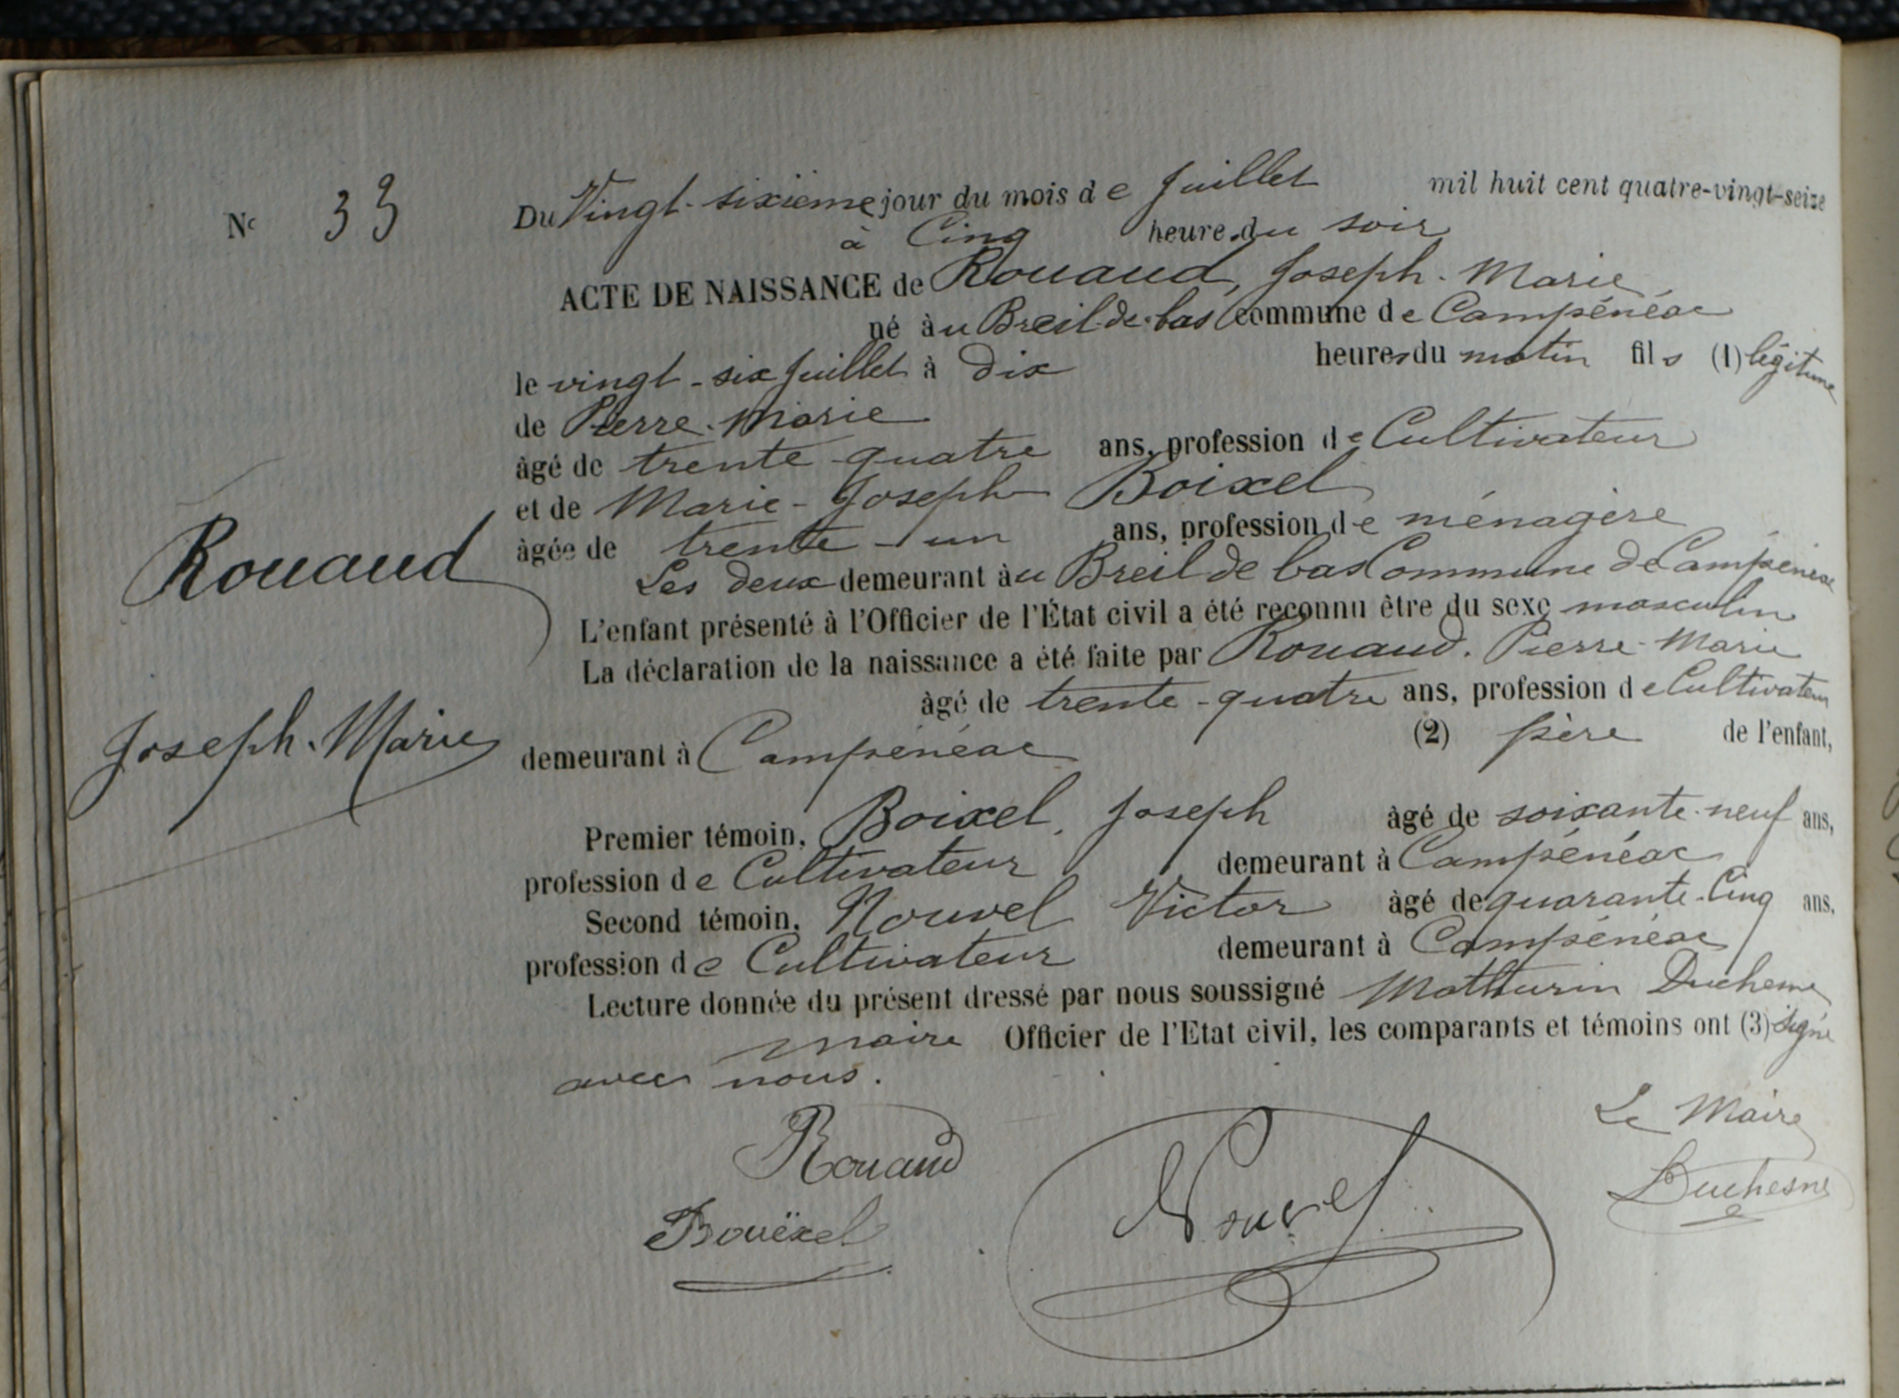 N° 33
Du Vingt-sixième jour du mois de Juillet mil huit cent quatre-vingt-seize
à Cinq heure du soir
ACTE DE NAISSANCE de Rouaud, Joseph-Marie
né à au Breil de bas commune de Campénéac
le vingt-six Juillet à dix heures du matin fils (1) légitime
de Pierre-Marie
âgé de trente-quatre ans, profession de Cultivateur
et de Marie-Joseph Boixel
âgée de trente-un ans, profession de ménagère
Les deux demeurant à au Breil de bas Commune de Campénéac
Rouaud
L'enfant présenté à l'Officier de l'État civil a été reconnu être du sexe masculin
La déclaration de la naissance a été faite par Rouaud. Pierre-Marie
âgé de trente-quatre ans, profession de Cultivateur
Joseph-Marie
demeurant à Campénéac (2) père de l'enfant,
Premier témoin, Boixel, Joseph âgé de soixante-neuf ans,
profession de Cultivateur demeurant à Campénéac
Second témoin, Nouvel Victor âgé de quarante-Cinq ans,
profession de Cultivateur demeurant à Campénéac
Lecture donnée du présent dressé par nous soussigné Mathurin Duchesne
maire Officier de l'Etat civil, les comparants et témoins ont (3) signé
avec nous.
Le Maire
Rouaud
Nouvel
Duchesne
Bouëxel